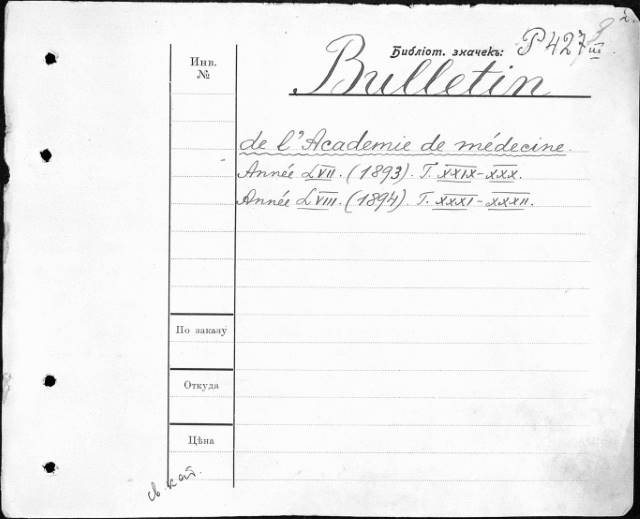 Библіот. значекъ: P 427 III
Инв. №
Bulletin
de l'Academie de médecine.
Année LVII. (1893). T. XXIX-XXX.
Année LVIII. (1894). T. XXXI-XXXII.
По заказу
Откуда
Цѣна
св. кат.